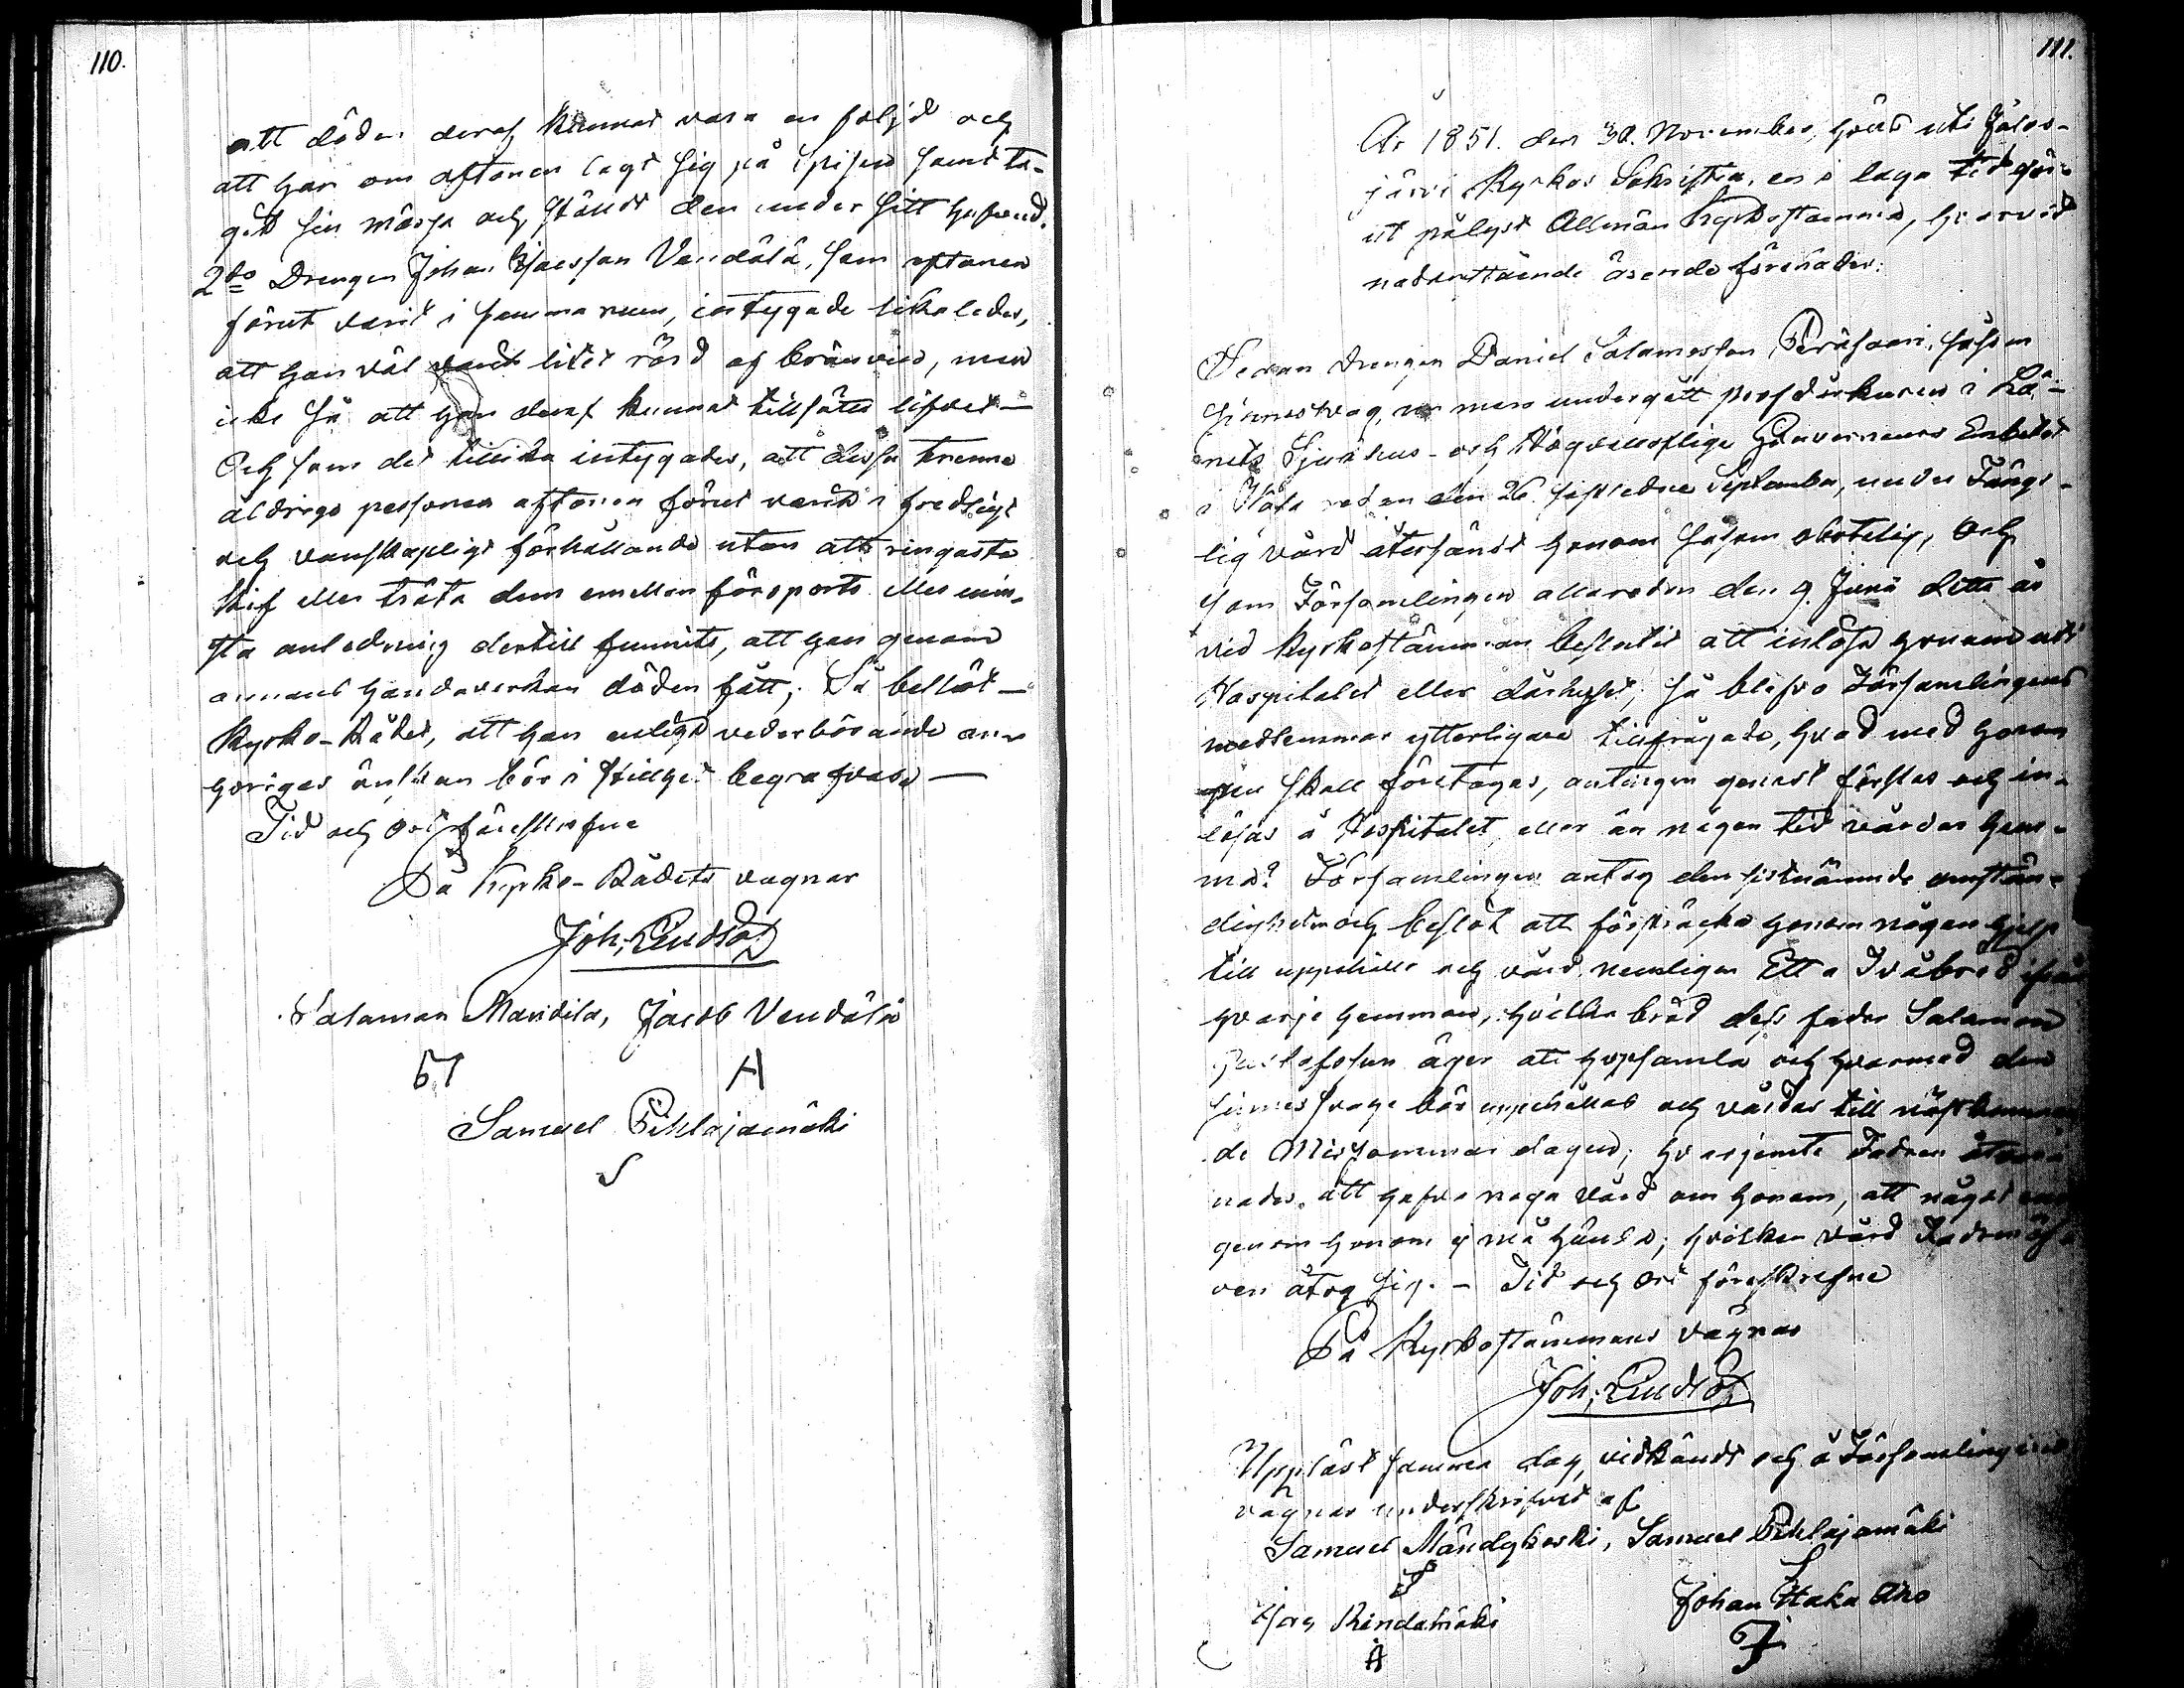 110.
att döden deraf kunnat vara en följd och
att han om aftonen lagt sig på spisen samt ta-
git sin mössa och ställt den under sitt hufvud.
2do Drengen Johan Isacsson Vendälä, som aftonen
förut varit i samma rum, intygade likaledes,
att han väl varit litet rörd af bränvin, men
icke så att han deraf kunnat tillsätta lifvet –
Och som det tillika intygades, att dessa trenne
aldrige personer aftonen förut varit i fredligt
och vänskapligt förhållande utan att ringaste
kif eller träta dem emellan försports eller min-
sta anledning dertill funnits, att han genom
annans handaverkan döden fått; Så beslöt –
Kyrko-Rådet, att han enligt vederbörande an-
horiges önskan bör i stillhet begrafvas –
Tid och ort föreskrefne
På Kyrko-Rådets vagnar
Joh:
Salamon Mandila, Jacob Vendälä
Samuel Pihlajamäki
S
111.
År 1851. den 30. November, höllts uti Jalas-
järvi Kyrkas Sakristia, en i laga tid för-
ut pålyst Allmän Kyrkostämma, hvarvid
nedanstående ärende förehades:
Sedan drengen Daniel Salamosson Peräsaari, såsom
sinnesvag, numera undergått profdårkuren i Lä-
nets Sjukhus – och Högvällofliga Gouverneurs Embetet
i Wasa redan den 26 sistledne September, under Fängs-
lig vård återsändt honom såsom obotelig, Och
som Församlingen allaredan den 9. Junii detta år
vid kyrkostämman beslutit att inlösa honom uti
Hospitalet eller dårhuset; så blefvo Församlingens
medlemmar ytterligare tillfrågade, hvad med honom
nu skall företagas, antingen genast förslas och in-
lösas å Hospitalet, eller än någon tid vårdas hem-
ma? Församlingen antog den sistnämnde omstän-
digheten och beslöt att försträcka honom någon hjelp
till uppehälle och vård, nemligen Ett a Två bröd ifrån
hvarje hemman, hvilka bröd dess fader Salamon
Gustafsson äger att hopsamla och hvarmed den
sinnessvage bör uppehållas och vårdas till nästkomman
de Midsommar dagen; hvarjemte Fadren
nades, att hafva noga vård om honom, att något
genom honom ej må hända; hvilken vård Fadren
ven åtog sig. – Tid och ort föreskrefne
På Kyrkostämmans vägnar
Joh:
Uppläst samma dag, vidkändt och å Församlingens
vägnar underskrifvet af
Samuel Mändykoski, Samuel Pihlajamäki
Isac Rindamäki Johan Haka Aho